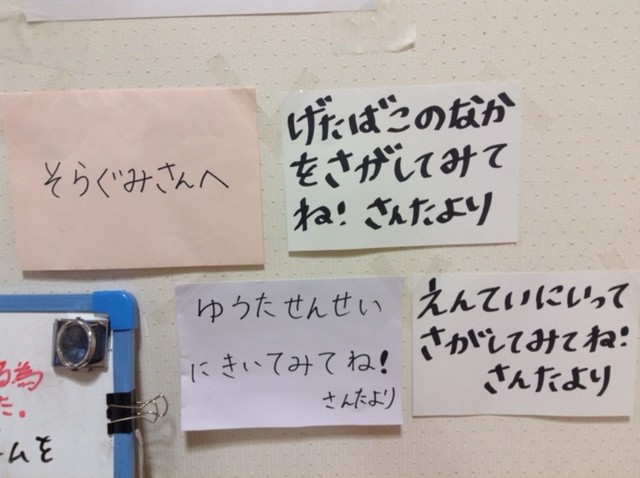 そらぐみさんへ
げたばこのなか
をさがしてみて
ね! さんたより
ゆうたせんせい
にきいてみてね!
さんたより
えんていにいって
さがしてみてね!
さんたより
る為
た。
ームを